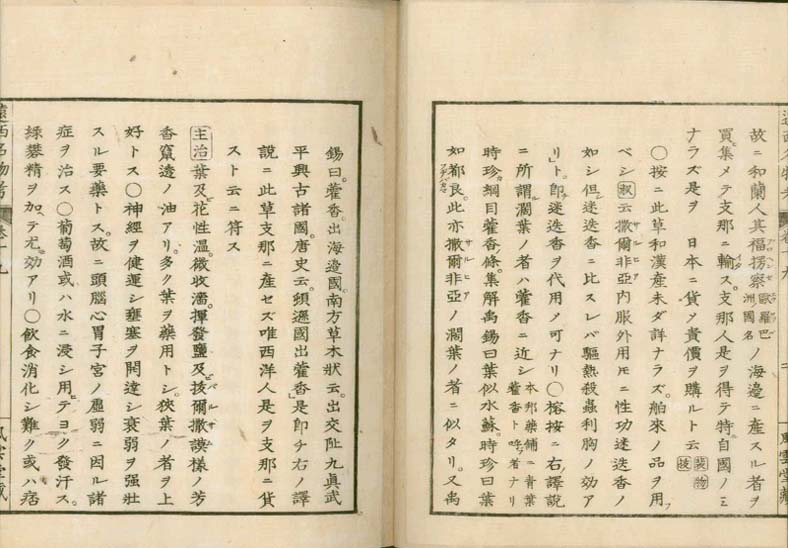 故ニ和蘭人其福拐察歐羅巴洲國名ノ海邊ニ産スル者ヲ
買集メテ支那ニ輸ス。支那人是ヲ得テ特自國ノミ
ナラズ是ヲ 日本ニ貨ノ貴價ヲ購ルト云
○按ニ此草和漢産未ダ詳ナラズ。舶來ノ品ヲ用フ
ベシ 叔云撒爾非亞内服外用トモニ性功迷迭香ノ
如シ但迷迭香ニ比スレバ驅熱殺蟲利胸ノ効ア
リト。即迷迭香ヲ代用メ可ナリ○榕按ニ右譯説
ニ所謂濶葉ノ者ハ藿香ニ近シ本邦藥鋪ニ青葉藿香ト呼者ナリ
時珍綱目藿香條。集解禹錫曰葉似水蘇。時珍曰葉
如都良。此亦撒爾非亞ノ濶葉ノ者ニ似タリ。又禹
錫曰。藿香出海邊國。南方草木狀云。出交阯九眞武
平興古諸國。唐史云。頻遜國出藿香。是即チ右ノ譯
説ニ此草支那ニ産セズ唯西洋人是ヲ支那ニ貨
スト云ニ符ス
主治 葉及花性温。微收濇。揮發鹽及拔爾撒謨樣ノ芳
香竄透ノ油アリ。多ク葉ヲ藥用トシ。狹葉ノ者ヲ上
好トス○神經ヲ健運シ壅塞ヲ開達シ衰弱ヲ強壯
スル要藥トス。故ニ頭腦心胃子宮ノ虚弱ニ因ル諸
症ヲ治ス○葡萄酒或ハ水ニ浸シ用テヨク發汗ス。
緑礬精ヲ加テ尤効アリ○飲食消化シ難ク或ハ痞
遠西名物考 卷十九
風雲堂藏